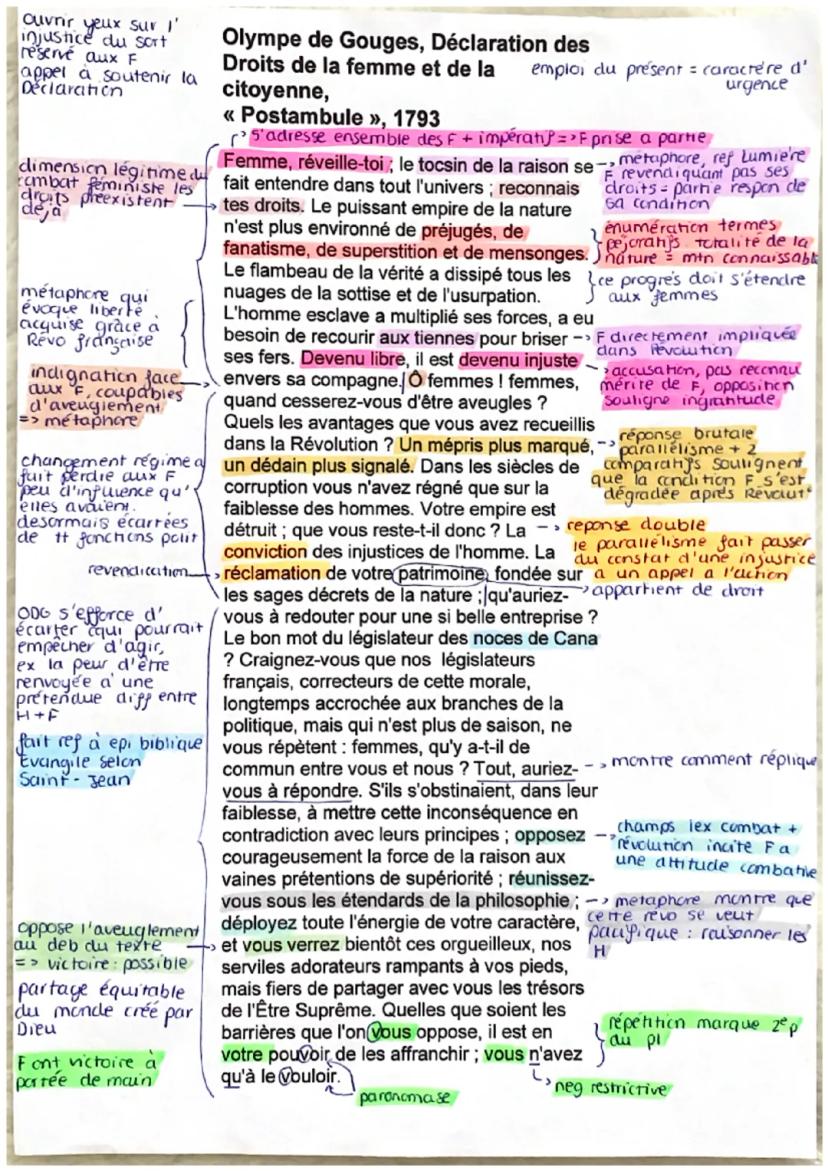 ouvrir yeux sur l'
injustice du sort
réservé aux F
appel à soutenir la
Déclaration
Olympe de Gouges, Déclaration des
Droits de la femme et de la
citoyenne,
« Postambule », 1793
emploi du présent = caractère d'
urgence
s'adresse ensemble des F + impératif => F prise a partie
dimension légitime du
combat féministe les
droits préexistent
déjà
Femme, réveille-toi ; le tocsin de la raison se
fait entendre dans tout l'univers ; reconnais
tes droits. Le puissant empire de la nature
n'est plus environné de préjugés, de
fanatisme, de superstition et de mensonges.
Le flambeau de la vérité a dissipé tous les
nuages de la sottise et de l'usurpation.
L'homme esclave a multiplié ses forces, a eu
besoin de recourir aux tiennes pour briser
ses fers. Devenu libre, il est devenu injuste
envers sa compagne. Ô femmes ! femmes,
quand cesserez-vous d'être aveugles ?
Quels les avantages que vous avez recueillis
dans la Révolution ? Un mépris plus marqué,
un dédain plus signalé. Dans les siècles de
corruption vous n'avez régné que sur la
faiblesse des hommes. Votre empire est
détruit ; que vous reste-t-il donc ? La
conviction des injustices de l'homme. La
réclamation de votre patrimoine, fondée sur
les sages décrets de la nature ; qu'auriez-
vous à redouter pour une si belle entreprise ?
Le bon mot du législateur des noces de Cana
? Craignez-vous que nos législateurs
français, correcteurs de cette morale,
longtemps accrochée aux branches de la
politique, mais qui n'est plus de saison, ne
vous répètent : femmes, qu'y a-t-il de
commun entre vous et nous ? Tout, auriez-
vous à répondre. S'ils s'obstinaient, dans leur
faiblesse, à mettre cette inconséquence en
contradiction avec leurs principes ; opposez
courageusement la force de la raison aux
vaines prétentions de supériorité ; réunissez-
vous sous les étendards de la philosophie ;
déployez toute l'énergie de votre caractère,
et vous verrez bientôt ces orgueilleux, nos
serviles adorateurs rampants à vos pieds,
mais fiers de partager avec vous les trésors
de l'Être Suprême. Quelles que soient les
barrières que l'on vous oppose, il est en
votre pouvoir de les affranchir ; vous n'avez
qu'à le vouloir.
métaphore, ref Lumière
F revendiquant pas ses
droits = partie respon de
sa condition
énumération termes
péjoratifs. Totalité de la
nature = mtn connaissable
ce progrès doit s'étendre
aux femmes
métaphore qui
évoque liberté
acquise grâce à
Révo française
F directement impliquée
dans Révolution
accusation, pas reconnu
mérite de F, opposition
souligne ingratitude
indignation face
aux F, coupables
d'aveuglement
=> métaphore
réponse brutale
parallélisme + 2
comparatifs soulignent
que la condition F s'est
dégradée après Révolut°
changement régime a
fait perdre aux F
peu d'influence qu'
elles avaient.
desormais écartées
de tt fonctions polit
reponse double
le parallélisme fait passer
du constat d'une injustice
a un appel a l'action
revendication
appartient de droit
ODG s'efforce d'
écarter cqui pourrait
empêcher d'agir,
ex la peur d'être
renvoyée a une
prétendue diff entre
H + F
fait ref à epi biblique
Evangile selon
Saint-Jean
montre comment réplique
champs lex combat +
révolution incite F a
une attitude combative
métaphore montre que
cette révo se veut
pacifique : raisonner les
H
oppose l'aveuglement
au deb du texte
=> victoire : possible
partage équitable
du monde créé par
Dieu
F ont victoire à
portée de main
répétition marque 2e p
du pl
neg restrictive
paronomase